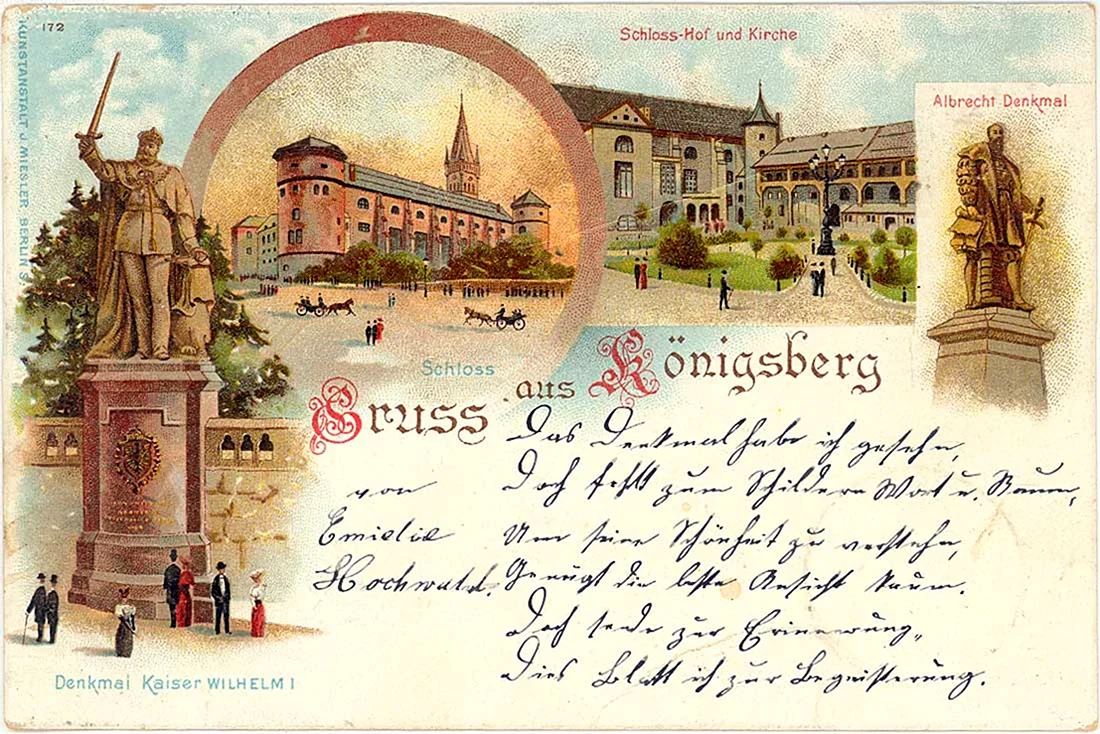 172
KUNSTANSTALT J. MIESLER, BERLIN S
Schloss-Hof und Kirche
Albrecht Denkmal
Schloss
Gruss aus Königsberg
Das Denkmal habe ich gesehn,
Doch fehlt zum Schildern Wort u. Raum,
Um seine Schönheit zu verstehn,
Genügt die beste Ansicht kaum.
Doch sende zur Erinnerung,
Dies Blatt ich zur Begeisterung.
von
Emielie
Hochwald.
Denkmal Kaiser WILHELM I